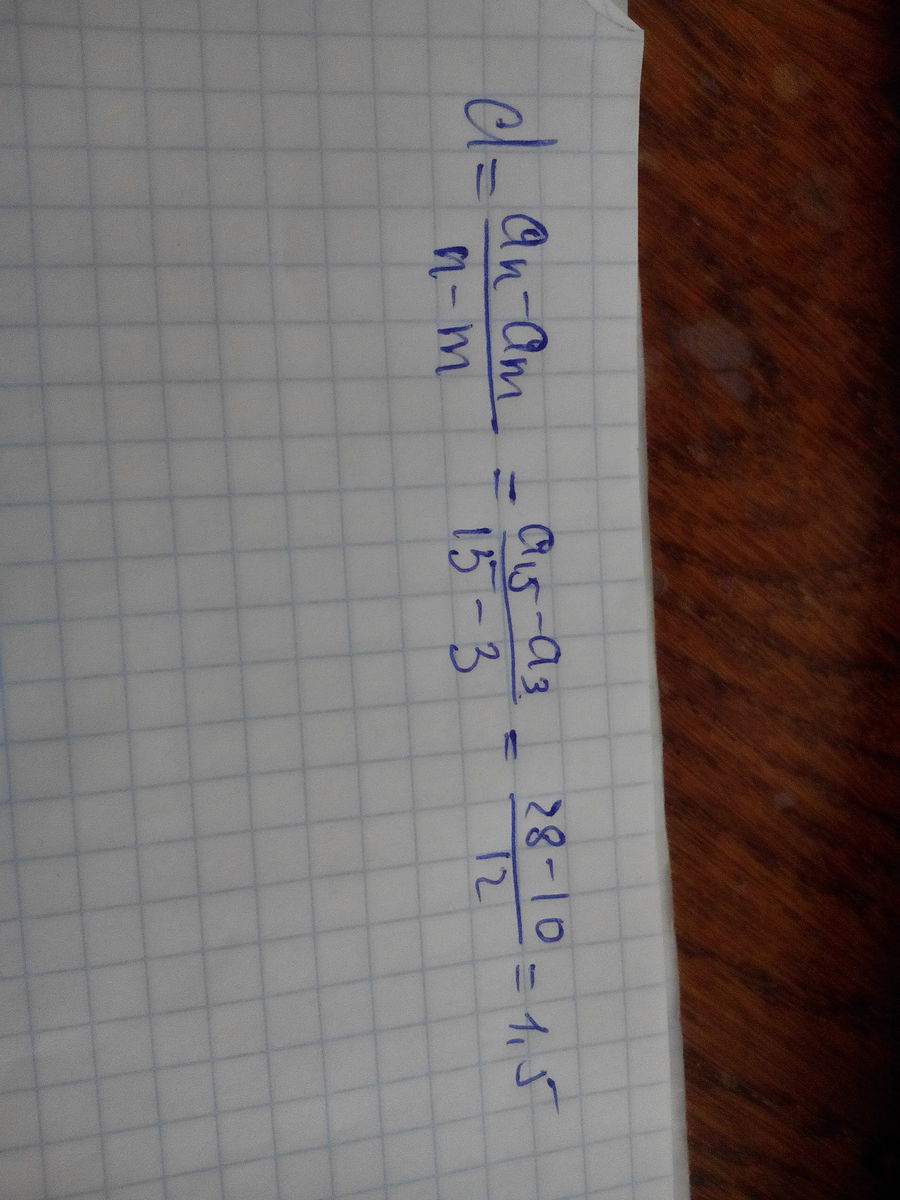 d = (aₙ - aₘ)/(n - m) = (a₁₅ - a₃)/(15 - 3) = (28 - 10)/12 = 1,5